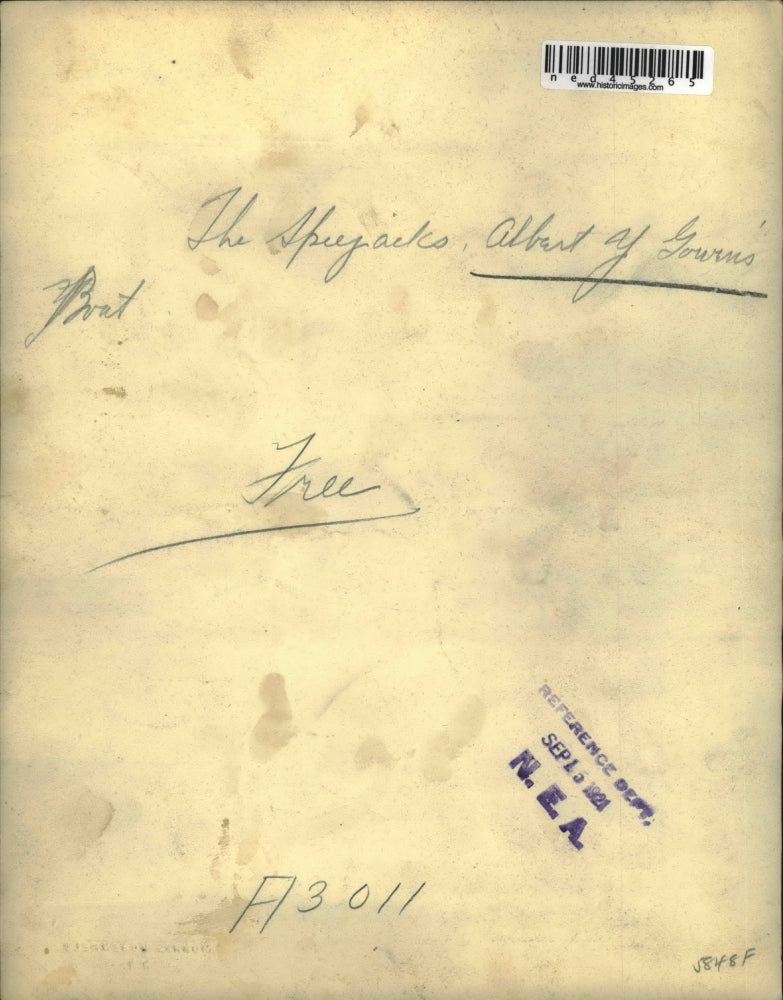 ned45265
www.historicimages.com
The Speejacks, Albert Y Gowens'
Boat
Free
REFERENCE DEPT.
SEP 15 1921
N. E. A.
A3011
5848F